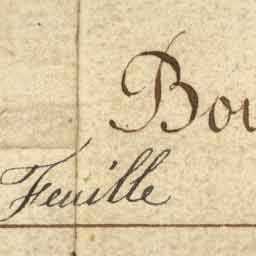 Bou
Feuille